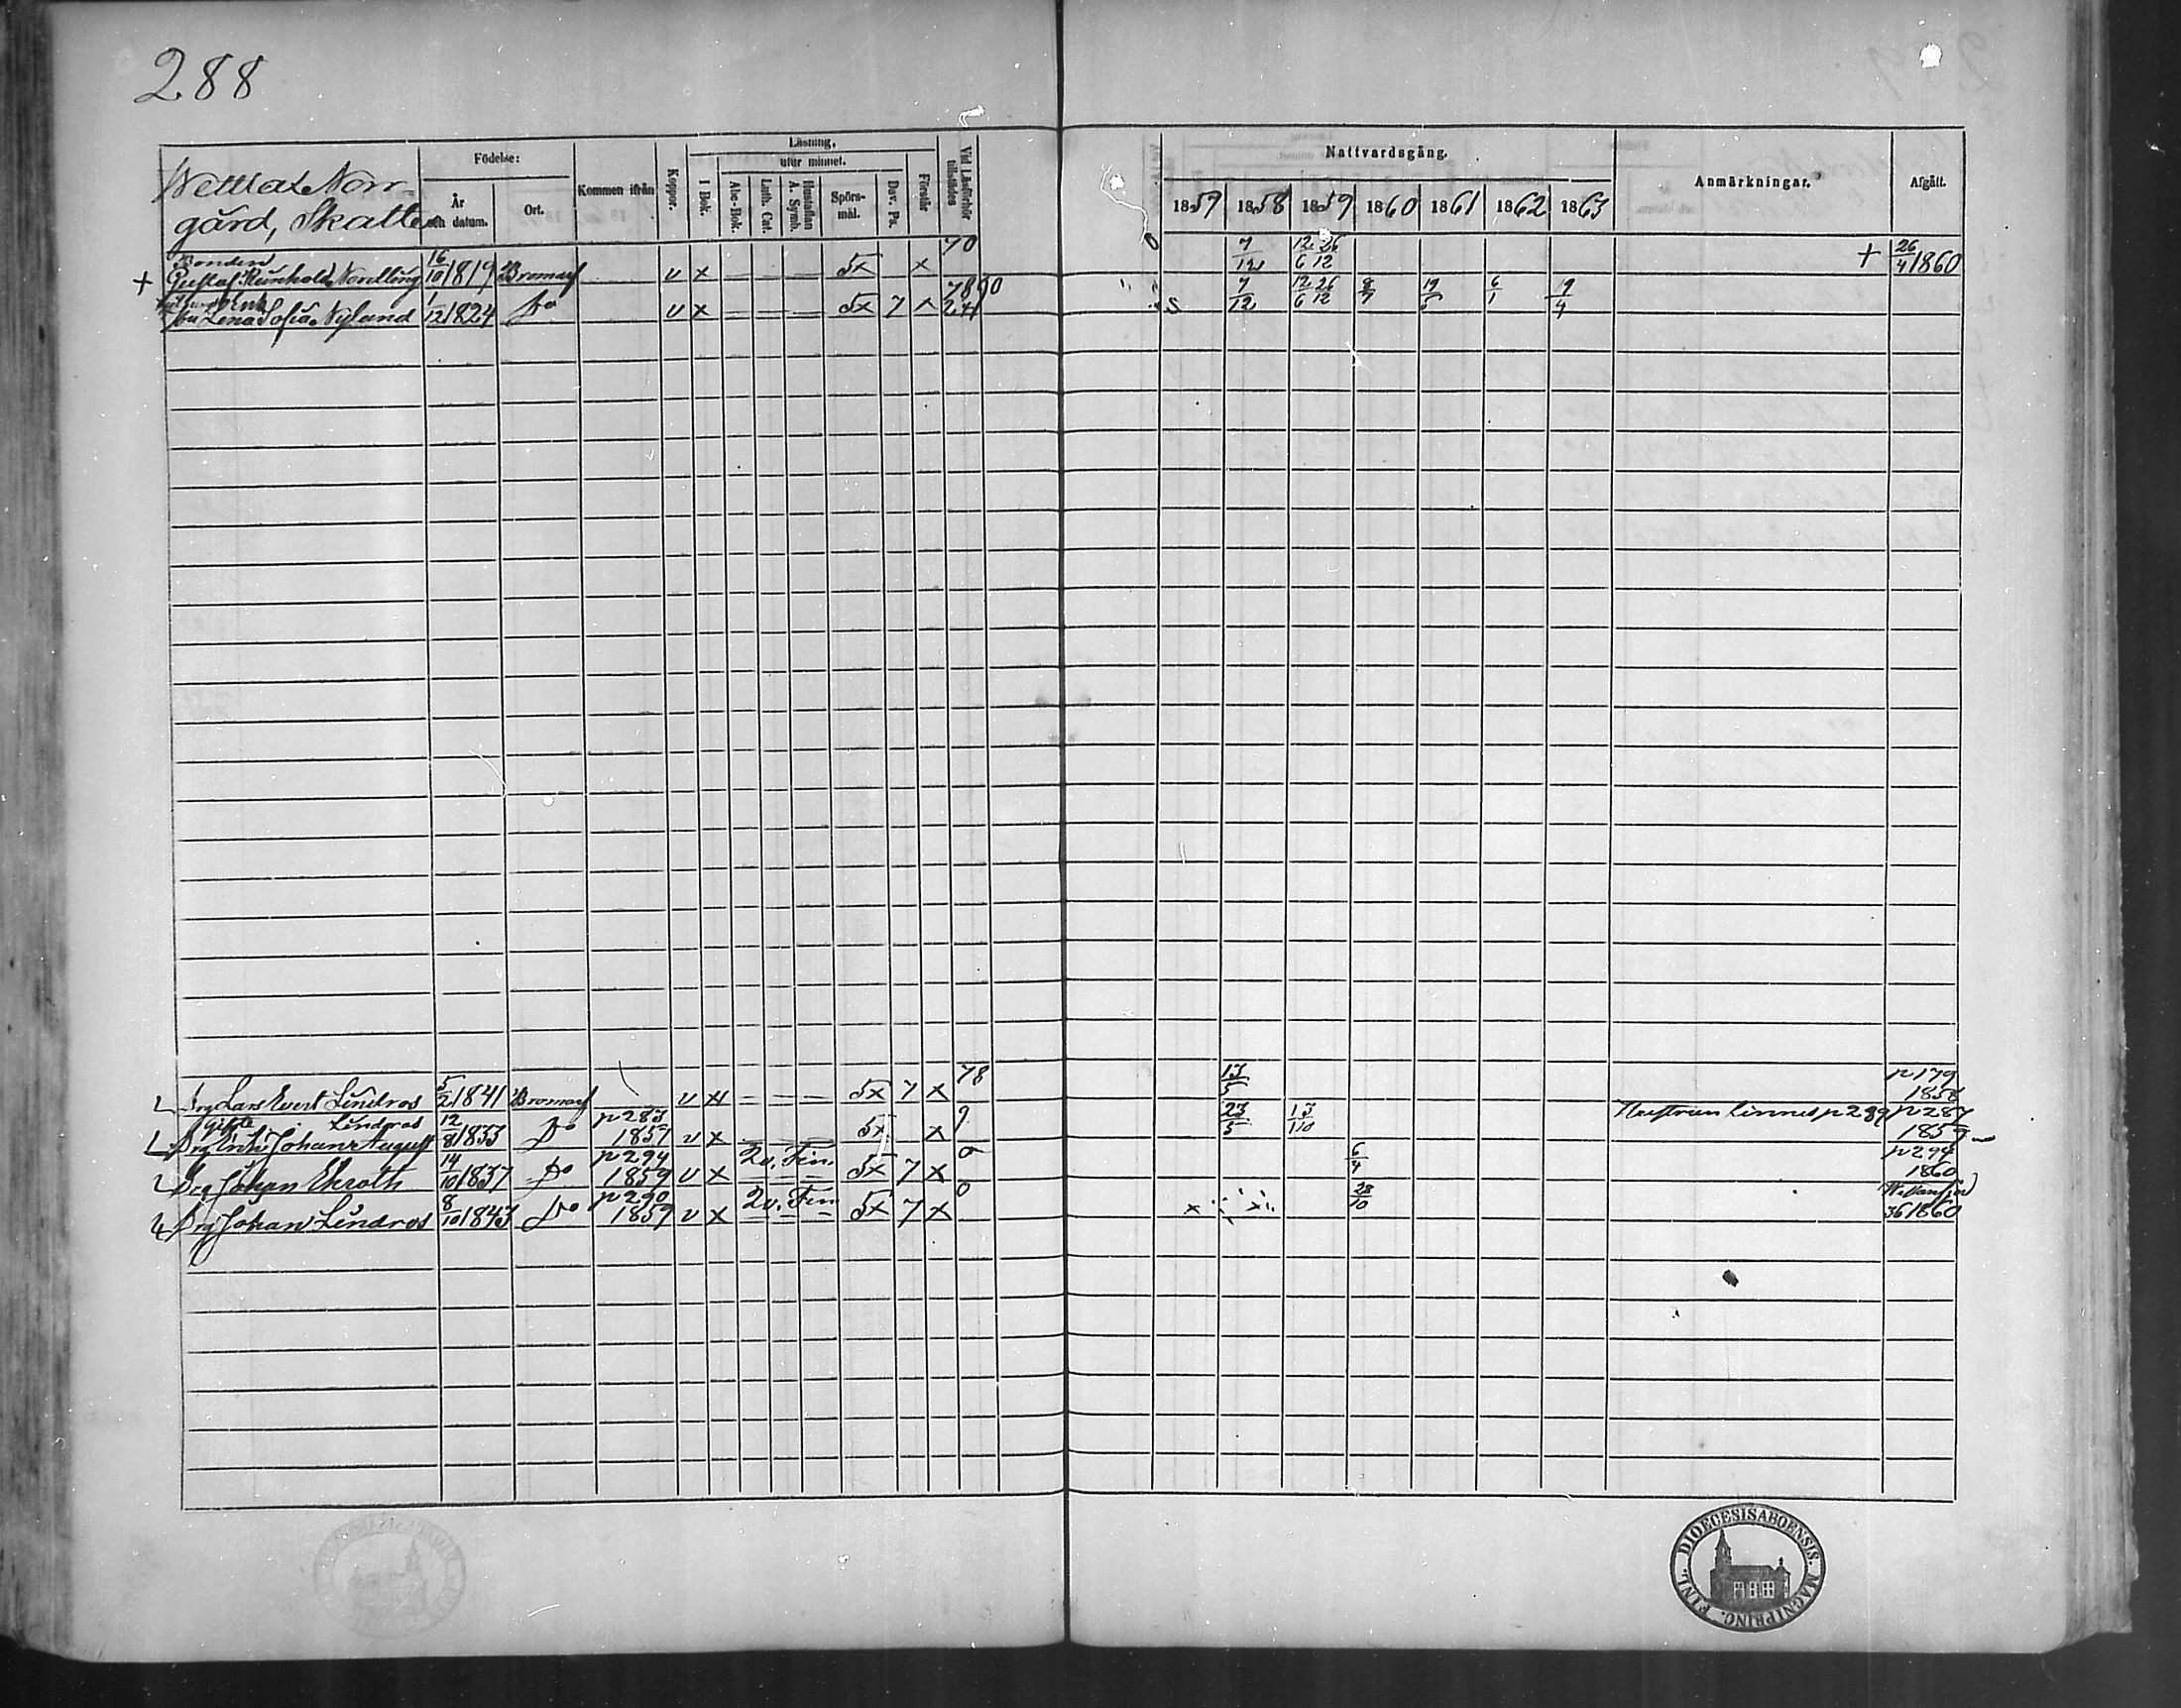 288
Norr-
gård, Skatte
Födelse:
År och datum.
Ort.
Kommen ifrån
Koppor.
Läsning,
I Bok.
utur minnet.
Abc-Bok.
Luth. Cat.
Hustaflan A. Symb.
Spörs-mål.
Dav. Ps.
Förstår
Vid Läsförhör tillstädes
Nattvardsgång.
1857 1858 1859 1860 1861 1862 1863
Anmärkningar.
Afgått.
Bonden 16 70 0 7 12 26 26
+ Gustaf Reinhold Nordling 10 1819 Bromarf v x — — — 5x x 12 6 12 + 4 1860
Enk 1 7890 7 12 26 8 19 6 9
Lena Sofia Nyland 12 1824 Do v x — — — 5x 7 x 24 S 12 6 12 7 5 1 4
5 78 13 p 179
Drg Lars Evert Lindros 2 1841 Bromarf v — — — 5x 7 x 5 1858
Gifte Lindros 12 p 283 9 23 13 linnes p 289 p 287
Drg Johan August 8 1833 Do 1857 v x — — — 5x x 5 10 1859
14 p 294 2v. Fin. 0 6 p 294
Drg Johan Ekroth 10 1837 Do 1859 v x — — — 5x 7 x 4 1860
8 p 290 2v. Fin 0 28
Drg Johan Lindros 10 1843 Do 1859 v x — — — 5x 7 x x 10 36 1860
DIOECESIS ABOENSIS. MAGNI PRINC. FINL.